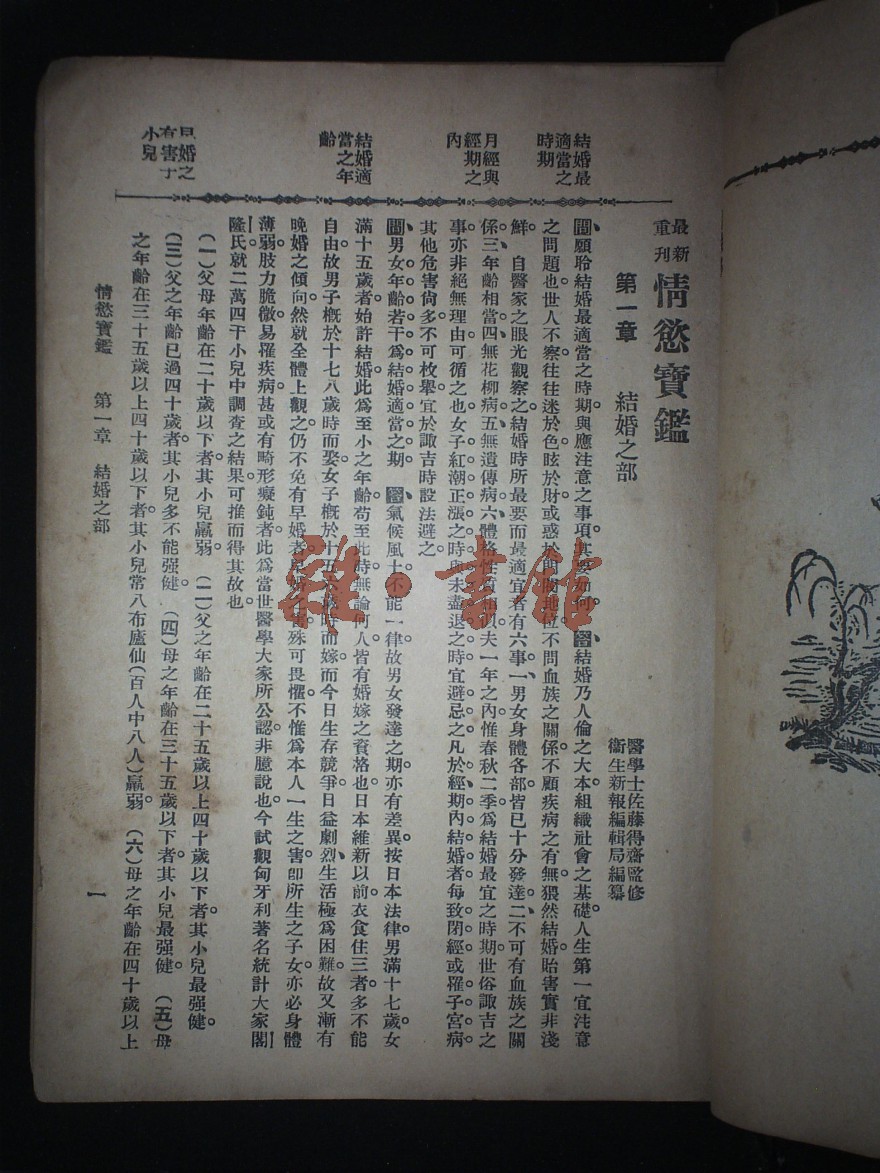 最新
重刊
情慾寶鑑
醫學士佐藤得齋監修
衞生新報編輯局編纂
第一章　結婚之部
結婚最
適當之
時期
問、願聆結婚最適當之時期。與應注意之事項。其要如何。答、結婚乃人倫之大本。組織社會之基礎。人生第一宜注意
之問題也。世人不察。往往迷於色。眩於財。或惑於門閥地位。不問血族之關係。不顧疾病之有無。猥然結婚。貽害實非淺
鮮。自醫家之眼光觀察之。結婚時所最要而最適宜者有六事。一、男女身體各部。皆已十分發達。二、不可有血族之關
月經與
經期之
內
係。三、年齡相當。四、無花柳病。五、無遺傳病。六、體格性質相似。夫一年之內。惟春秋二季。爲結婚最宜之時期。世俗諏吉之
事。亦非絕無理由可循之也。女子紅潮正漲之時。與未盡退之時。宜避忌之。凡於經期內結婚者。每致閉經。或罹子宮病。
其他危害尙多。不可枚舉。宜於諏吉時設法避之。
結婚適
當之年
齡
問、男女年齡若干。爲結婚適當之期。答、氣候風土。不能一律。故男女發達之期。亦有差異。按日本法律。男滿十七歲。女
滿十五歲者。始許結婚。此爲至小之年齡。苟至此時。無論何人。皆有婚嫁之資格也。日本維新以前。衣食住三者。多不能
自由。故男子槪於十七八歲時而娶。女子槪於十五六歲時而嫁。而今日生存競爭。日益劇烈、生活極爲困難。故又漸有
晚婚之傾向。然就全體上觀之。仍不免有早婚者。早婚之害。殊可畏懼。不惟爲本人一生之害。卽所生之子女。亦必身體
早婚之
有害于
小兒
薄弱。肢力脆微。易罹疾病。甚或有畸形癡鈍者。此爲當世醫學大家所公認。非臆說也。今試觀匈牙利著名統計大家閣
隆氏。就二萬四千小兒中調查之結果。可推而得其故也。
（一）父母年齡在二十歲以下者。其小兒羸弱。（二）父之年齡在二十五歲以上四十歲以下者。其小兒最强健。
（三）父之年齡已過四十歲者。其小兒多不能强健。（四）母之年齡在三十五歲以下者。其小兒最强健。（五）母
之年齡在三十五歲以上四十歲以下者。其小兒常八布廬仙（百人中八人）羸弱。（六）母之年齡在四十歲以上
情慾寶鑑　第一章　結婚之部
一
雜·書館